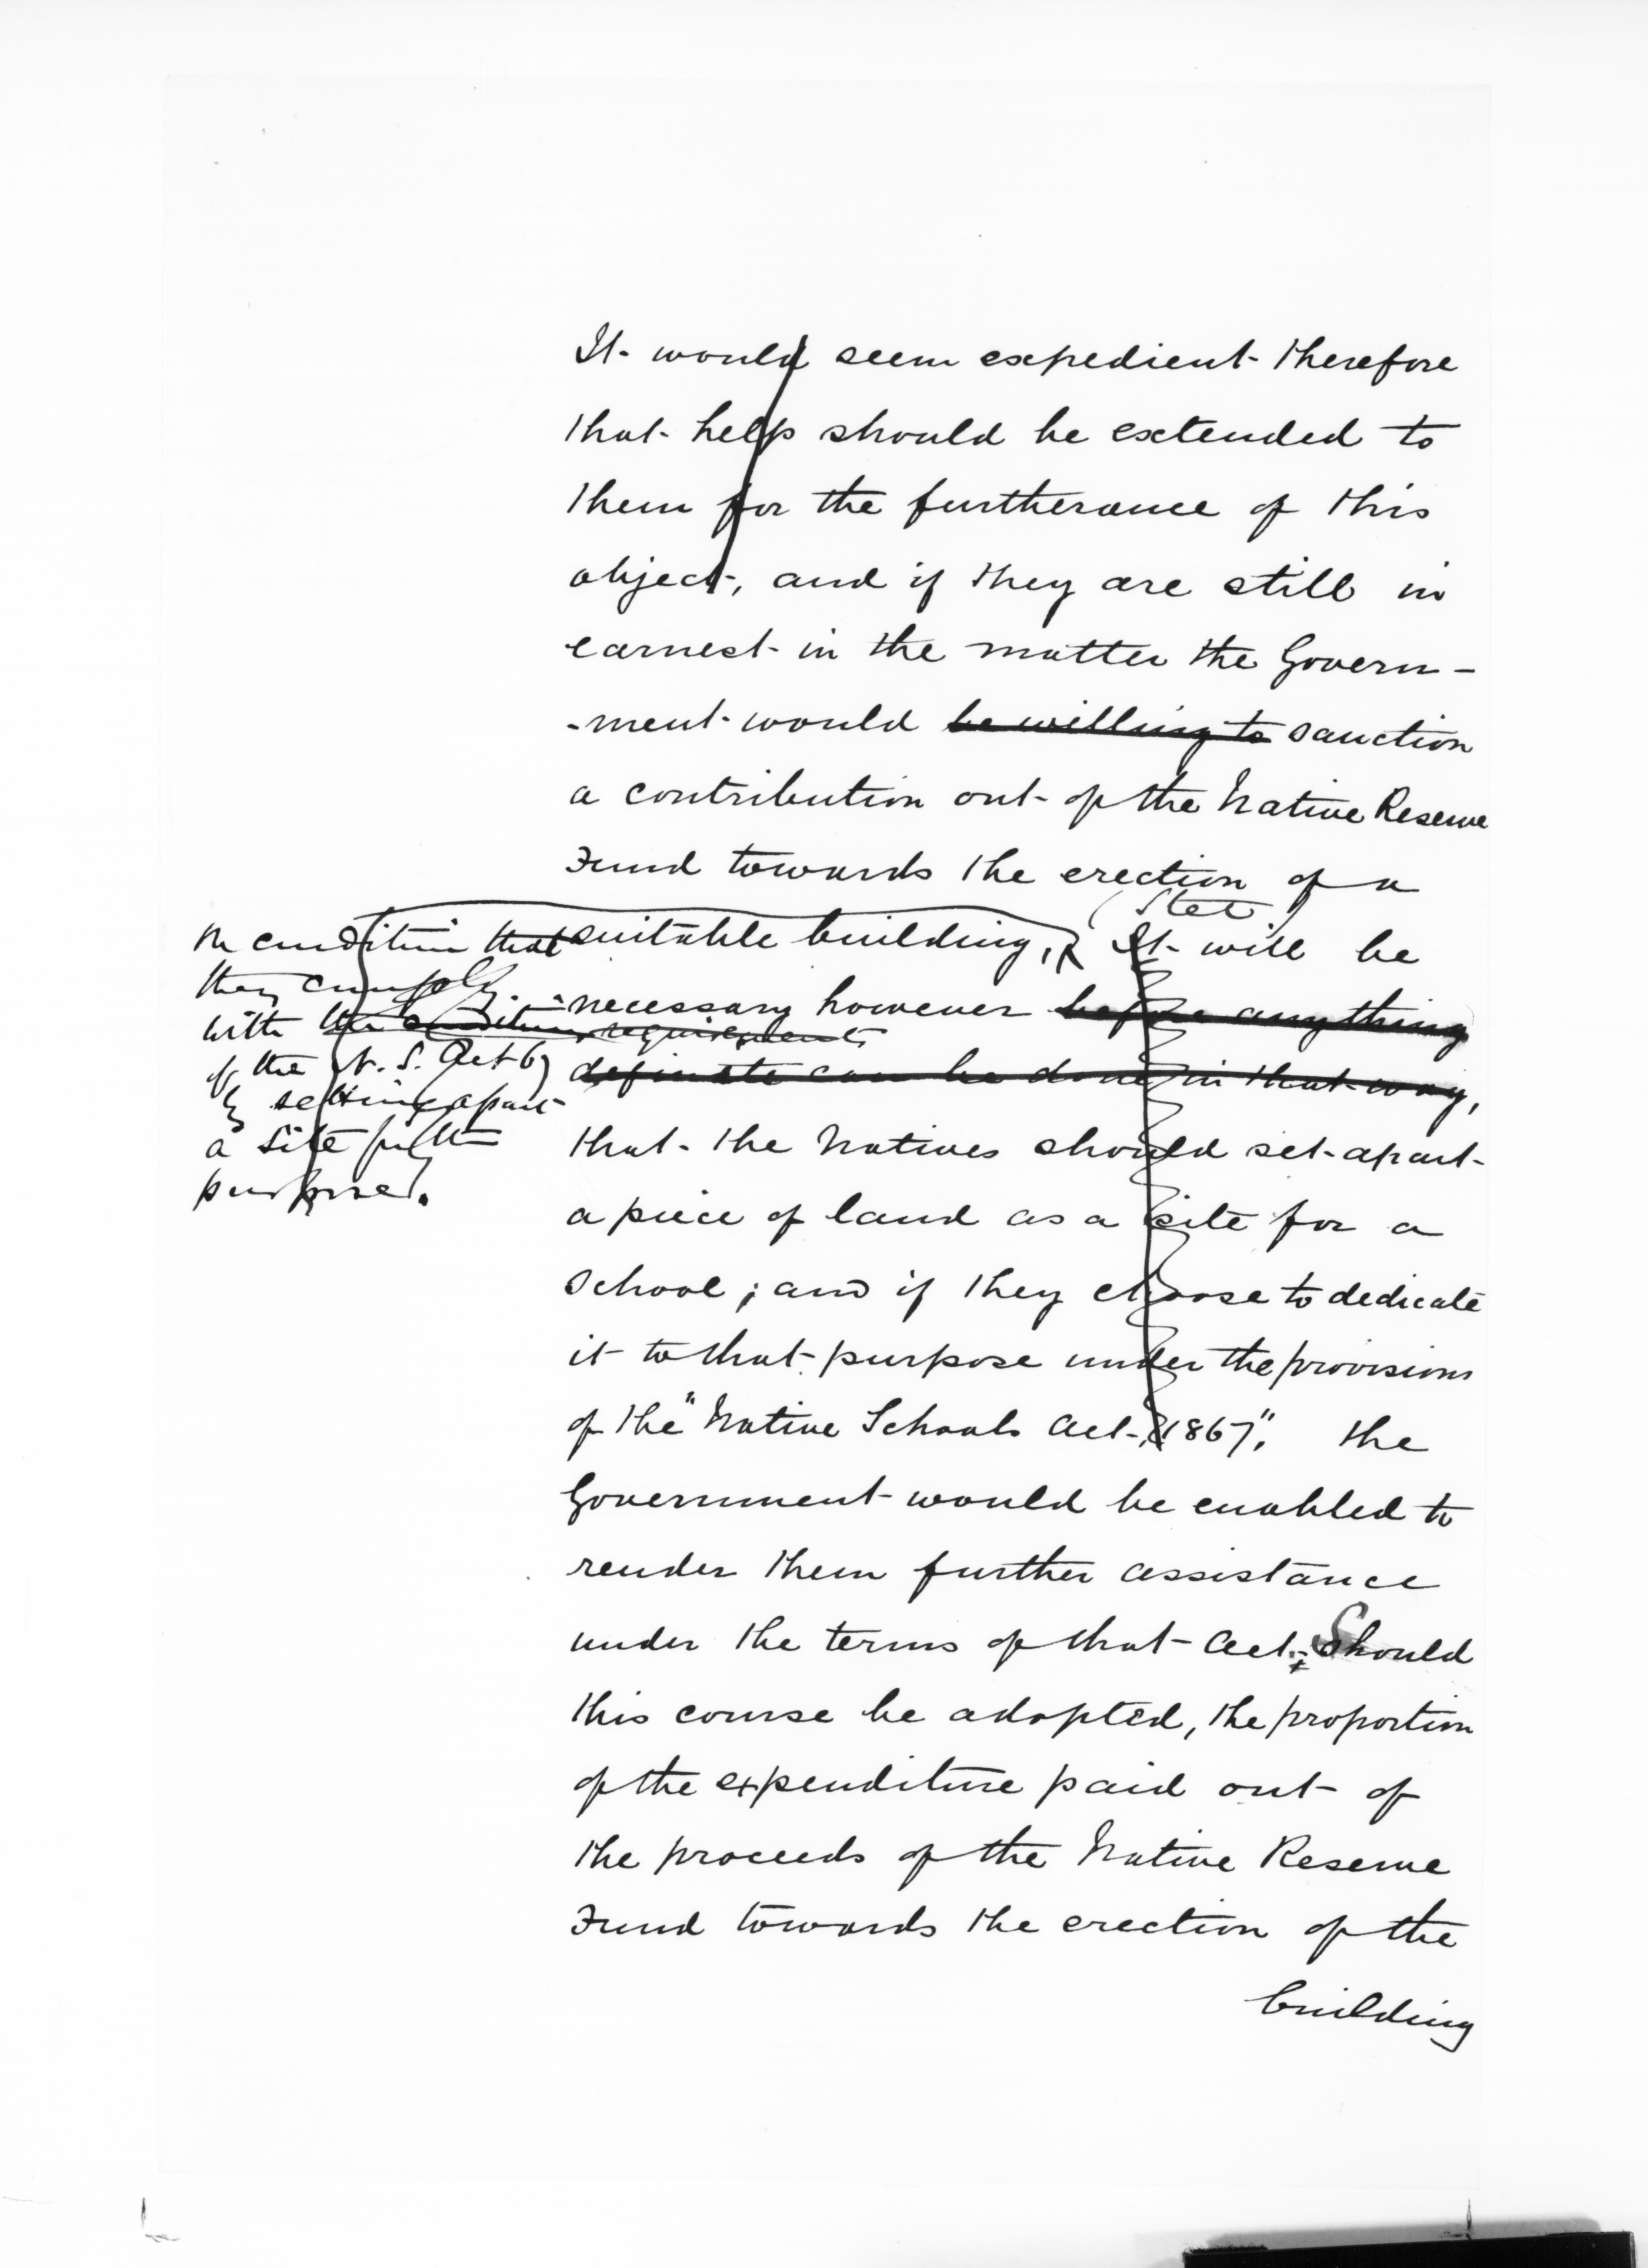 It would seem expedient therefore
that help should be extended to
them for the furtherance of this
object, and if they are still in
earnest in the matter the Govern-
-ment would be willing to sanction
a contribution out of the Native Reserve
Fund towards the erection of a
Stet
suitable building, It will be
necessary however before anything
definite can be done in that way,
that the Natives should set apart
a piece of land as a site for a
School; and if they choose to dedicate
it to that purpose under the provisions
of the "Native Schools Act, 1867," the
Government would be enabled to
render them further assistance
under the terms of that Act. Should
this course be adopted, the proportion
of the expenditure paid out of
the proceeds of the Native Reserve
Fund towards the erection of the
building
on condition that
they comply
with the condition requirements
of the N. S. Act 67
by setting apart
a site for the
purpose.